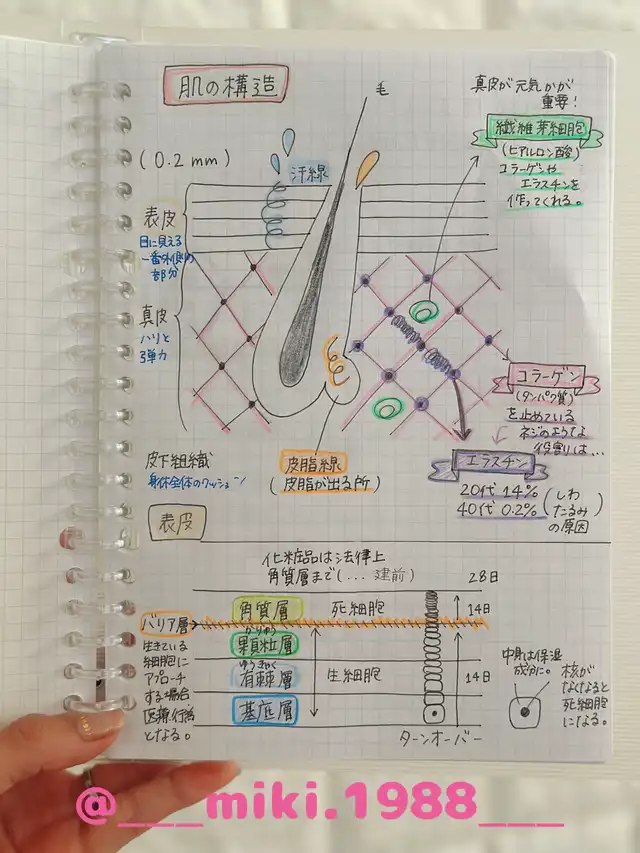 肌の構造
毛
真皮が元気かが
重要!
繊維芽細胞
(ヒアルロン酸)
コラーゲンや
エラスチンを
作ってくれる。
(0.2mm)
汗線
表皮
目に見える
一番外側の
部分
真皮
ハリと
弾力
コラーゲン
(タンパク質)
を止めている
ネジのような
役割りは…
エラスチン
20代 14%
40代 0.2%
(しわ
たるみ)
の原因
皮下組織
身体全体のクッション
皮脂線
(皮脂が出る所)
表皮
化粧品は法律上
角質層まで(...建前)
28日
角質層
死細胞
14日
バリア層
かりゅう
顆粒層
ゆうきょく
有棘層
生細胞
14日
基底層
生きている
細胞に
アプローチ
する場合
医療行為
となる。
ターンオーバー
中身は保湿
成分に。
核が
なくなると
死細胞
になる。
@___miki.1988___